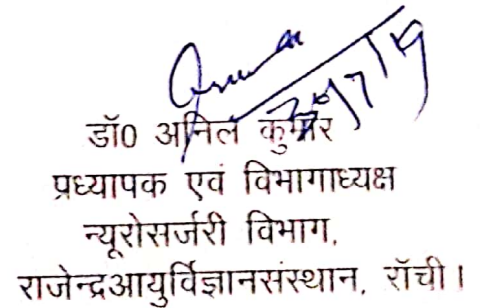 30/7/19
डॉ0 अनिल कुमार
प्रध्यापक एवं विभागाध्यक्ष
न्यूरोसर्जरी विभाग,
राजेन्द्रआयुर्विज्ञानसंस्थान, रॉची।